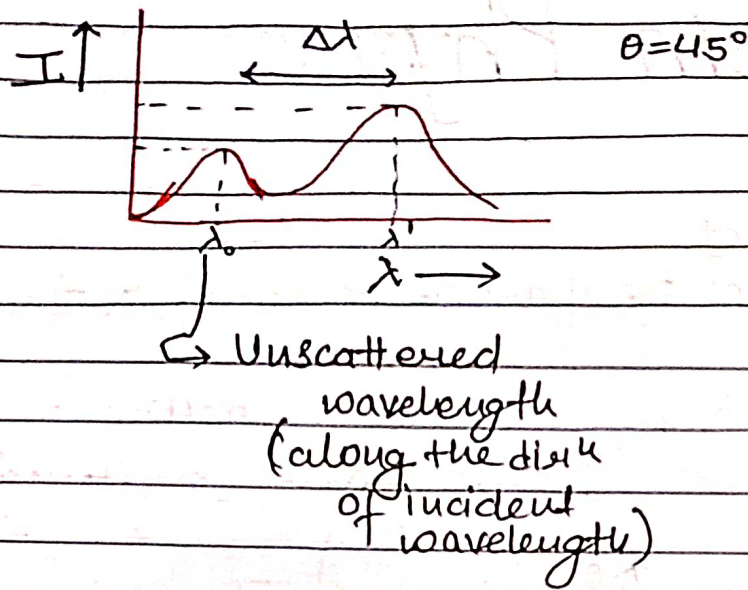 Δλ
θ=45°
I
λ₀
λ'
λ
Unscattered
wavelength
(along the dirⁿ
of incident
wavelength)